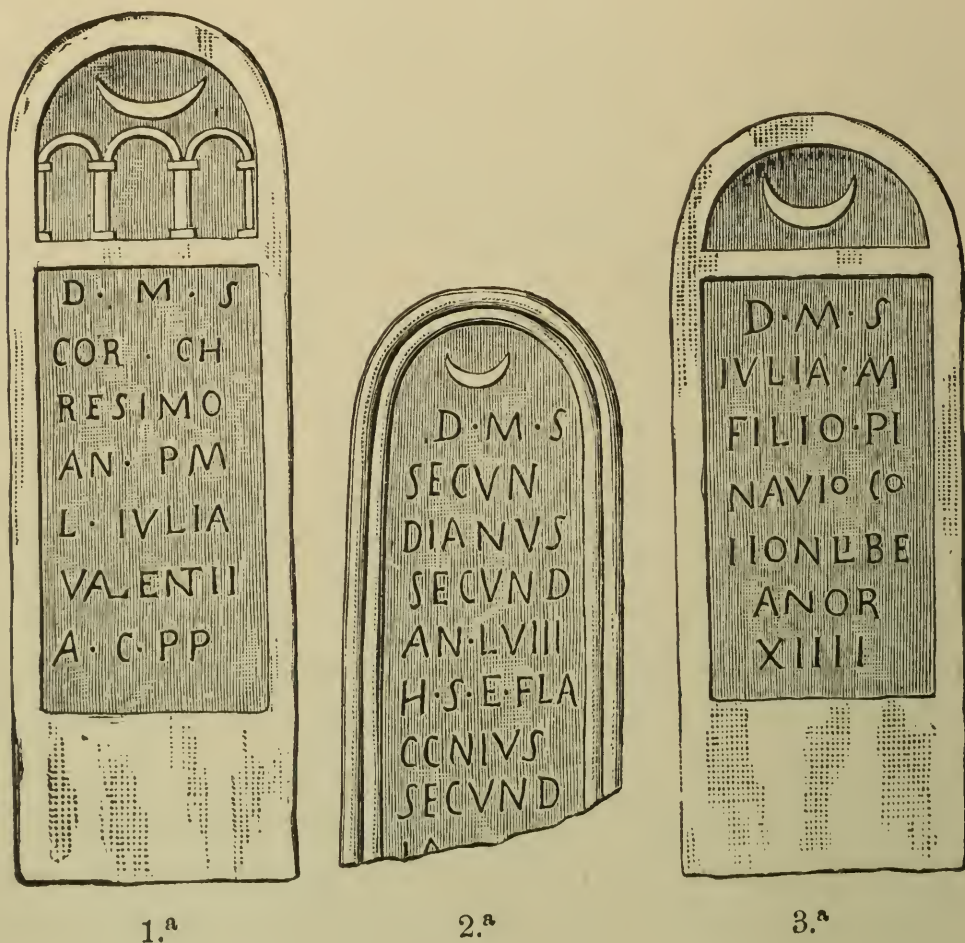 D · M · S
COR · CH
RESIMO
AN · PM
L · IVLIA
VALENTII
A · C · PP
1.ª
. D · M · S
SECVN
DIANVS
SECVND
AN · LVIII
H · S · E · FLA
CCNIVS
SECVND
IA
2.ª
D · M · S
IVLIA · M
FILIO · PI
NAVIO CO
IIONLIBE
ANOR
XIIII
3.ª